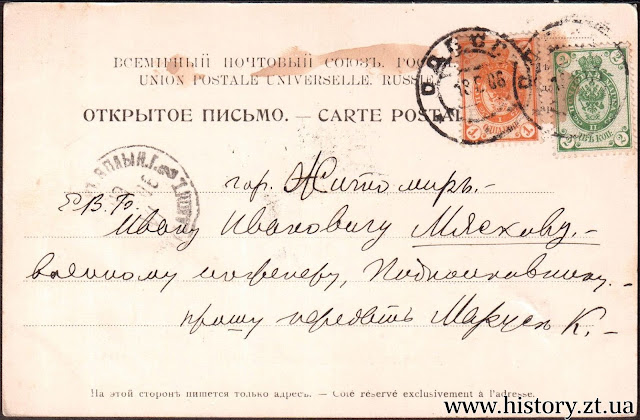 ВСЕМІРНЫЙ ПОЧТОВЫЙ СОЮЗЪ.
UNION POSTALE UNIVERSELLE. RUSSIE
ОТКРЫТОЕ ПИСЬМО. — CARTE POSTAL
ОДЕССА
06
гор. Житомиръ.-
Е.В.Б.
Ивану Ивановичу Мяскову.-
военному инженеру, Подполковнику.-
прошу передать Маруся К.-
На этой сторонѣ пишется только адресъ. — Coté réservé exclusivement à l'adresse.
www.history.zt.ua